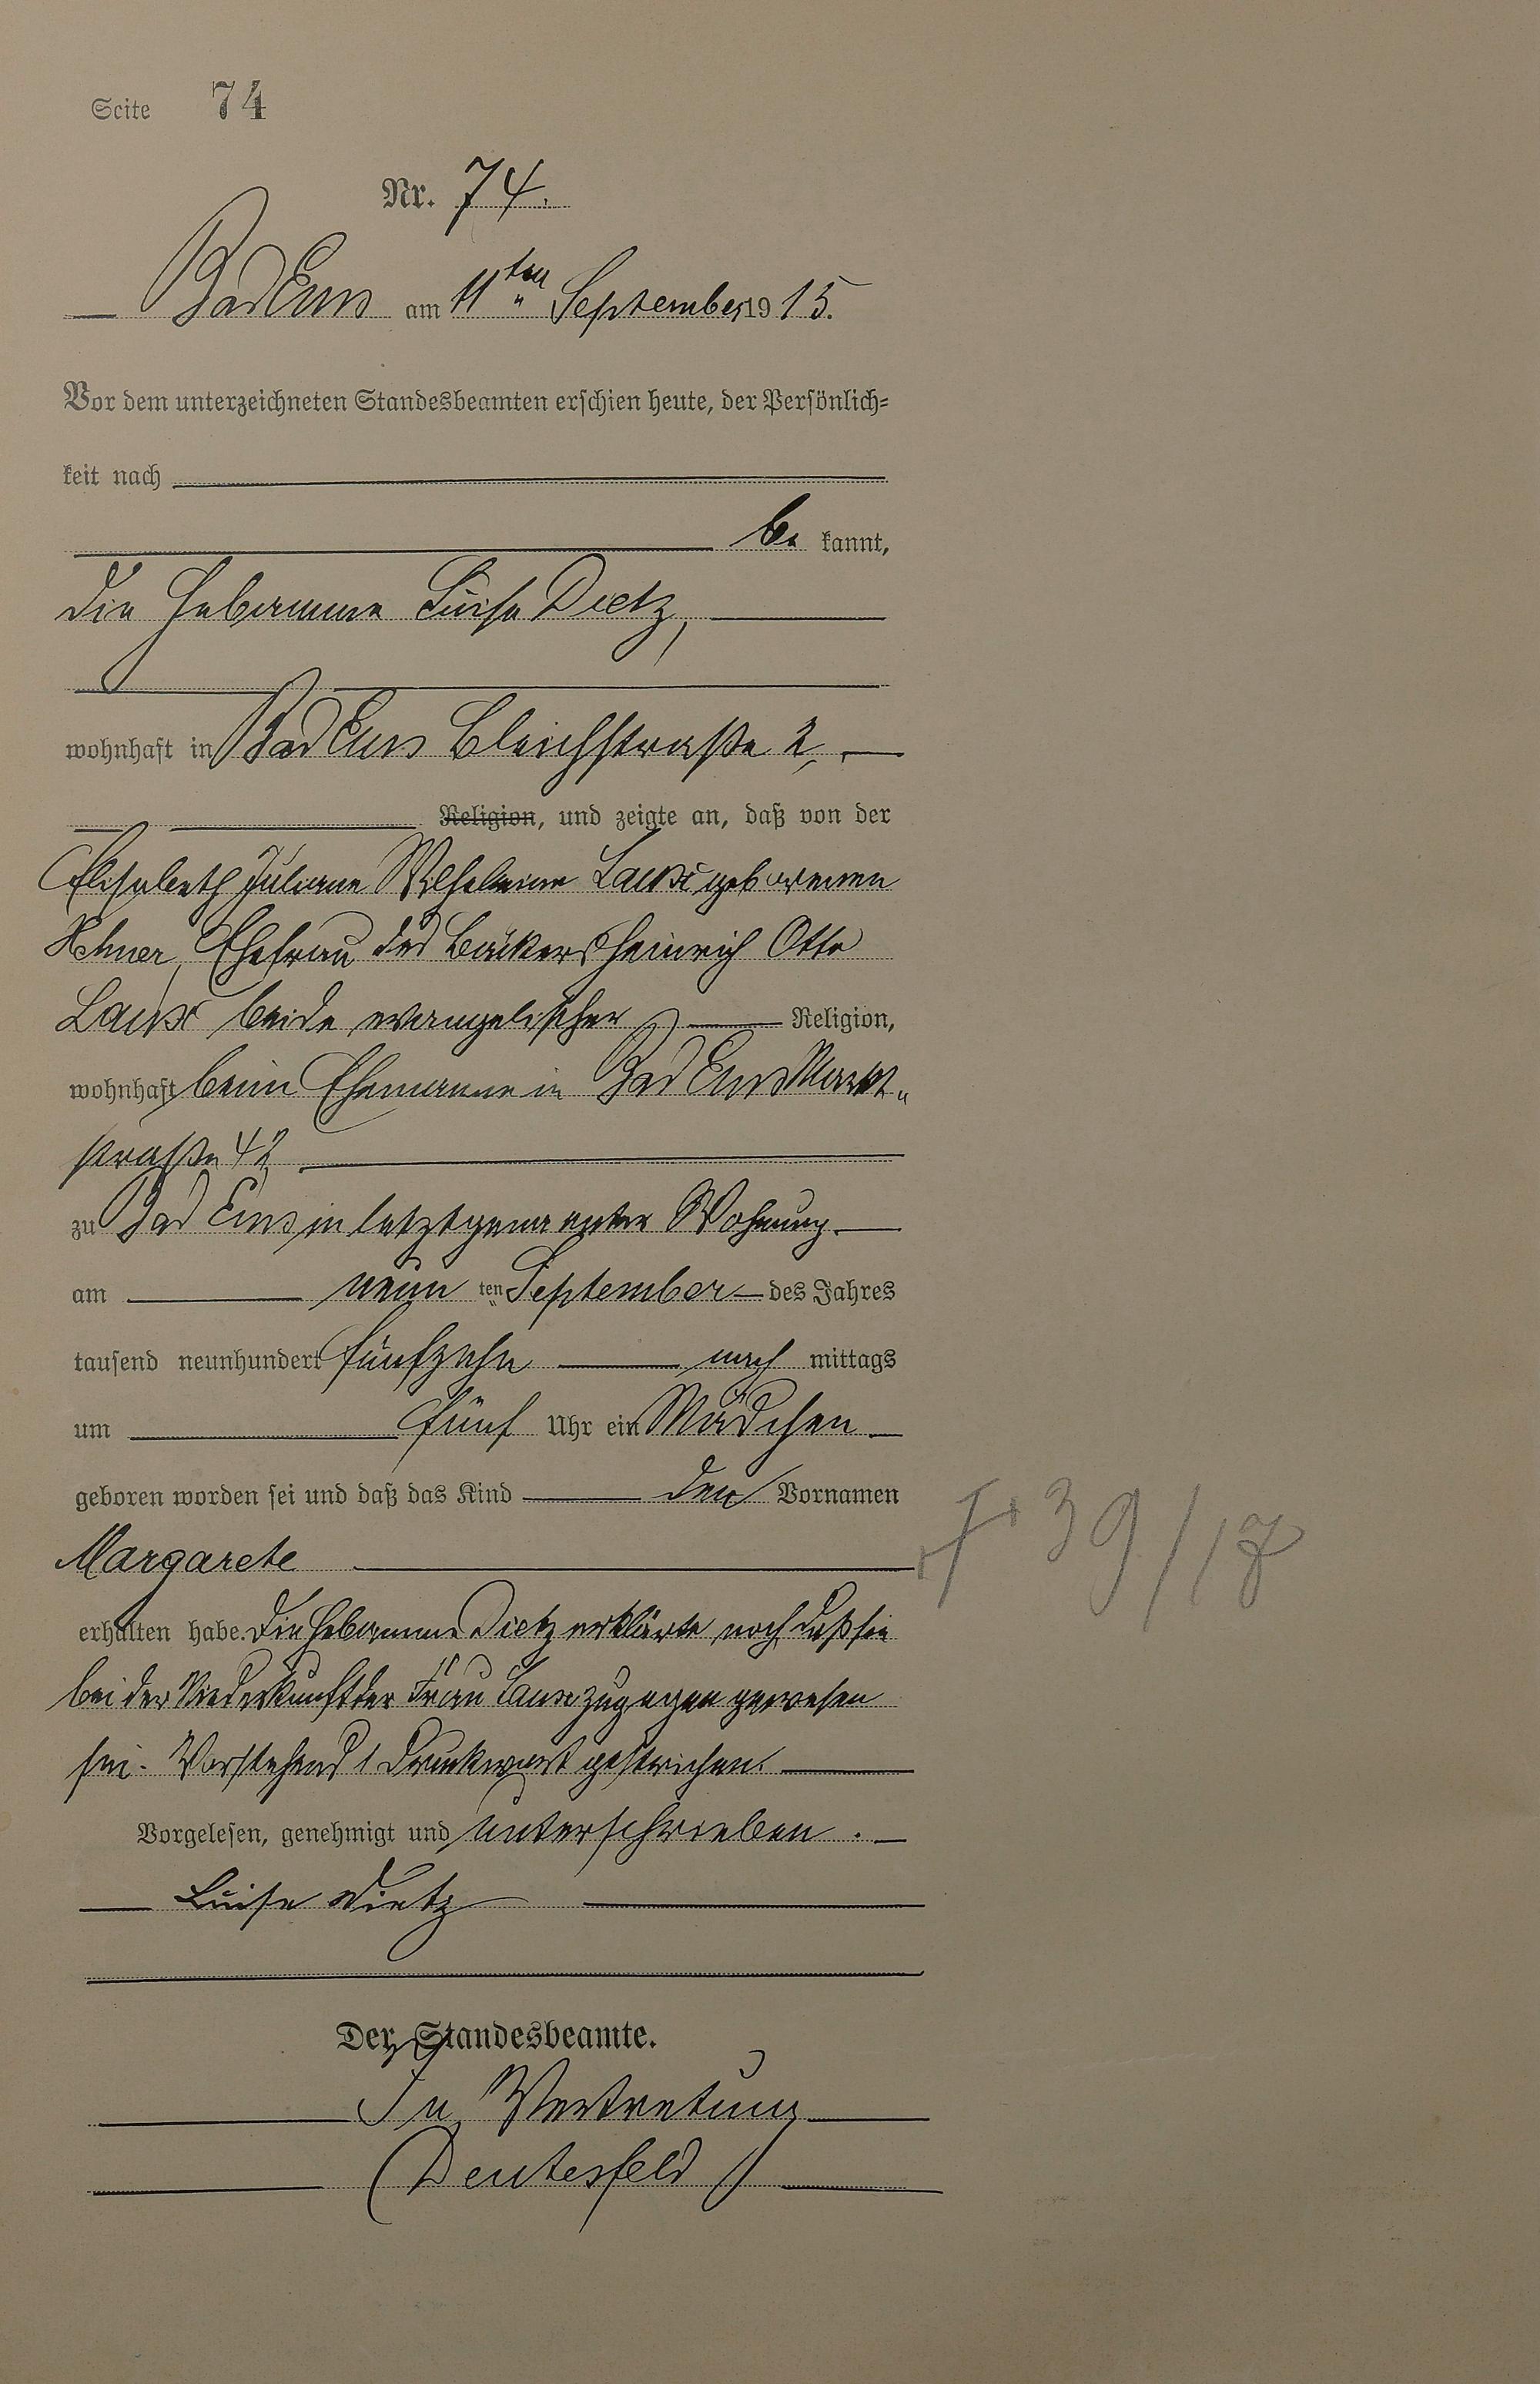 Seite 74
Nr. 74.
Bad Ems am 11ten September 1915.
Vor dem unterzeichneten Standesbeamten erschien heute, der Persönlich=
keit nach
be kannt,
die Hebamme Luise Dietz,
wohnhaft in Bad Ems Bleichstraße 2,
Religion, und zeigte an, daß von der
Elisabeth Juliane Wilhelmine Laux geborenen
Ehefrau des Bäckers Heinrich Otto
Laux beide evangelischer Religion,
wohnhaft beim Ehemanne in Bad Ems Markt„
straße 42
zu Bad Ems in letztgenannter Wohnung
am neun ten September des Jahres
tausend neunhundert fünfzehn nach mittags
um fünf Uhr ein Mädchen
geboren worden sei und daß das Kind den Vornamen
Margarete
erhalten habe. Die Hebamme Dietz erklärte noch, daß sie
bei der Niederkunft der Frau Laux zugegen gewesen
sei. Vorstehend 1 Druckwort gestrichen.
Vorgelesen, genehmigt und unterschrieben.
Luise Dietz
Der Standesbeamte.
In Vertretung
(Deutesfeld)
† 39/17